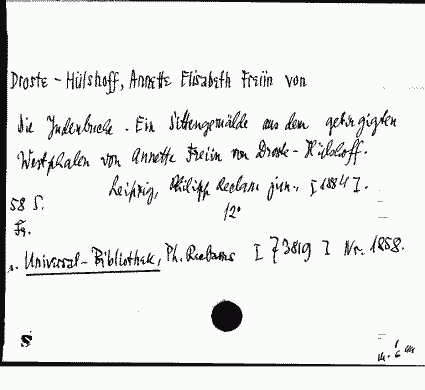 Droste-Hülshoff, Annette Elisabeth Freiin von
Die Judenbuche. Ein Sittengemälde aus dem gebirgigten
Westphalen von Annette Freiin von Droste-Hülshoff.
Leipzig, Philipp Reclam jun., [1884].
58 S. 12°
Fr.
s. Universal-Bibliothek, Ph. Reclams [73819] Nr. 1858.
S